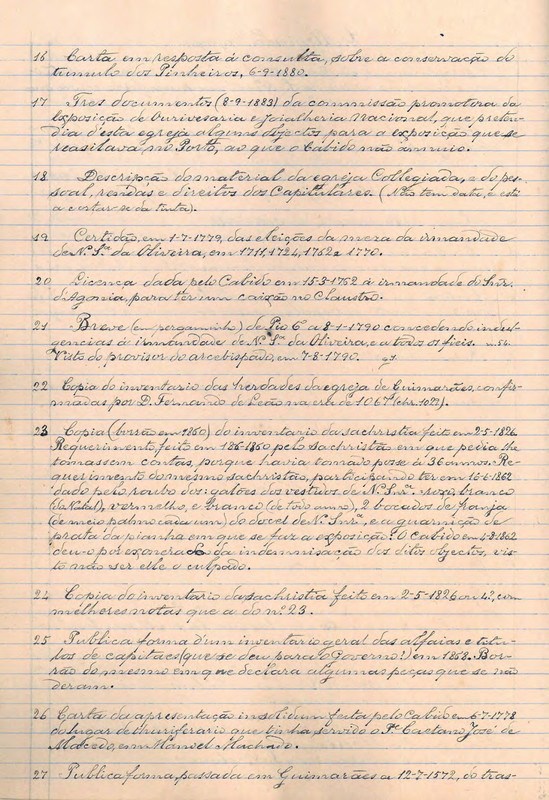 16 Carta, em resposta á consulta, sobre a conservação do
tumulo dos Pinheiros, 6-9-1880.
17 Tres documentos (8-9-1883) da commissão promotora da
Exposição de Ourivesaria e Joialheria Nacional, que preten-
dia d'esta egreja alguns objectos para a exposição que se
realisava, no Porto, ao que o Cabido não annuio.
18 Descripção do material da egreja Collegiada, e do pes-
soal, rendas e direitos dos Capitulares. (Não tem data, e está
a cortar-se da tinta).
19 Certidão, em 1-7-1779, das eleições da meza da irmandade
de N.ª S.ra da Oliveira, em 1711, 1724, 1762 e 1770.
20 Licença dada pelo Cabido em 15-3-1762 á irmandade do Snr.
d'Agonia, para ter um caixão no Claustro.
21 Breve (em pergaminho) de Pio 6º a 8-1-1790 concedendo indul-
gencias á irmandade de N.ª S.ra da Oliveira, e a todos os fieis.
Visto do provisor do arcebispado, em 7-8-1790.
22 Copia do inventario das herdades da egreja de Guimarães, confir-
madas por D. Fernando de Leão na era de 1067 (chr. 1029).
23 Copia (borrão em 1860) do inventario da sachristia feito em 2-5-1826.
Requerimento feito em 1860 pelo sachristão em que pedia lhe
tomassem contas, porque havia tomado posse á 36 annos. Re-
querimento do mesmo sachristão, participando ter em 16-6-1862
dado pelo roubo dos: galões dos vestidos de N. Snr.ª roxo, branco
(do Natal), vermelho, e branco (de todo anno), 2 bocados de franja
(de meio palmo cada um) do docel de N. Snr.ª, e a guarnição de
prata da pianha em que se faz a exposição. O cabido em 4-8-1862
deu-o por exonerado da indemnisação dos ditos objectos, vis-
to não ser elle o culpado.
24 Copia do inventario da sachristia feito em 2-5-1826 com
melhores notas que a do nº 23.
25 Publica forma d'um inventario geral das alfaias e titu-
los de capitaes (que se deu para o Governo!) em 1858. Bor-
rão do mesmo em que declara algumas peças que se não
deram.
26 Carta da apresentação in solidum feita pelo Cabido em 6-7-1778
do lugar de thuriferario que tinha servido o P.e Caetano José de
Macedo, em Manoel Machado.
27 Publica forma, passada em Guimarães a 12-7-1572, do tras-